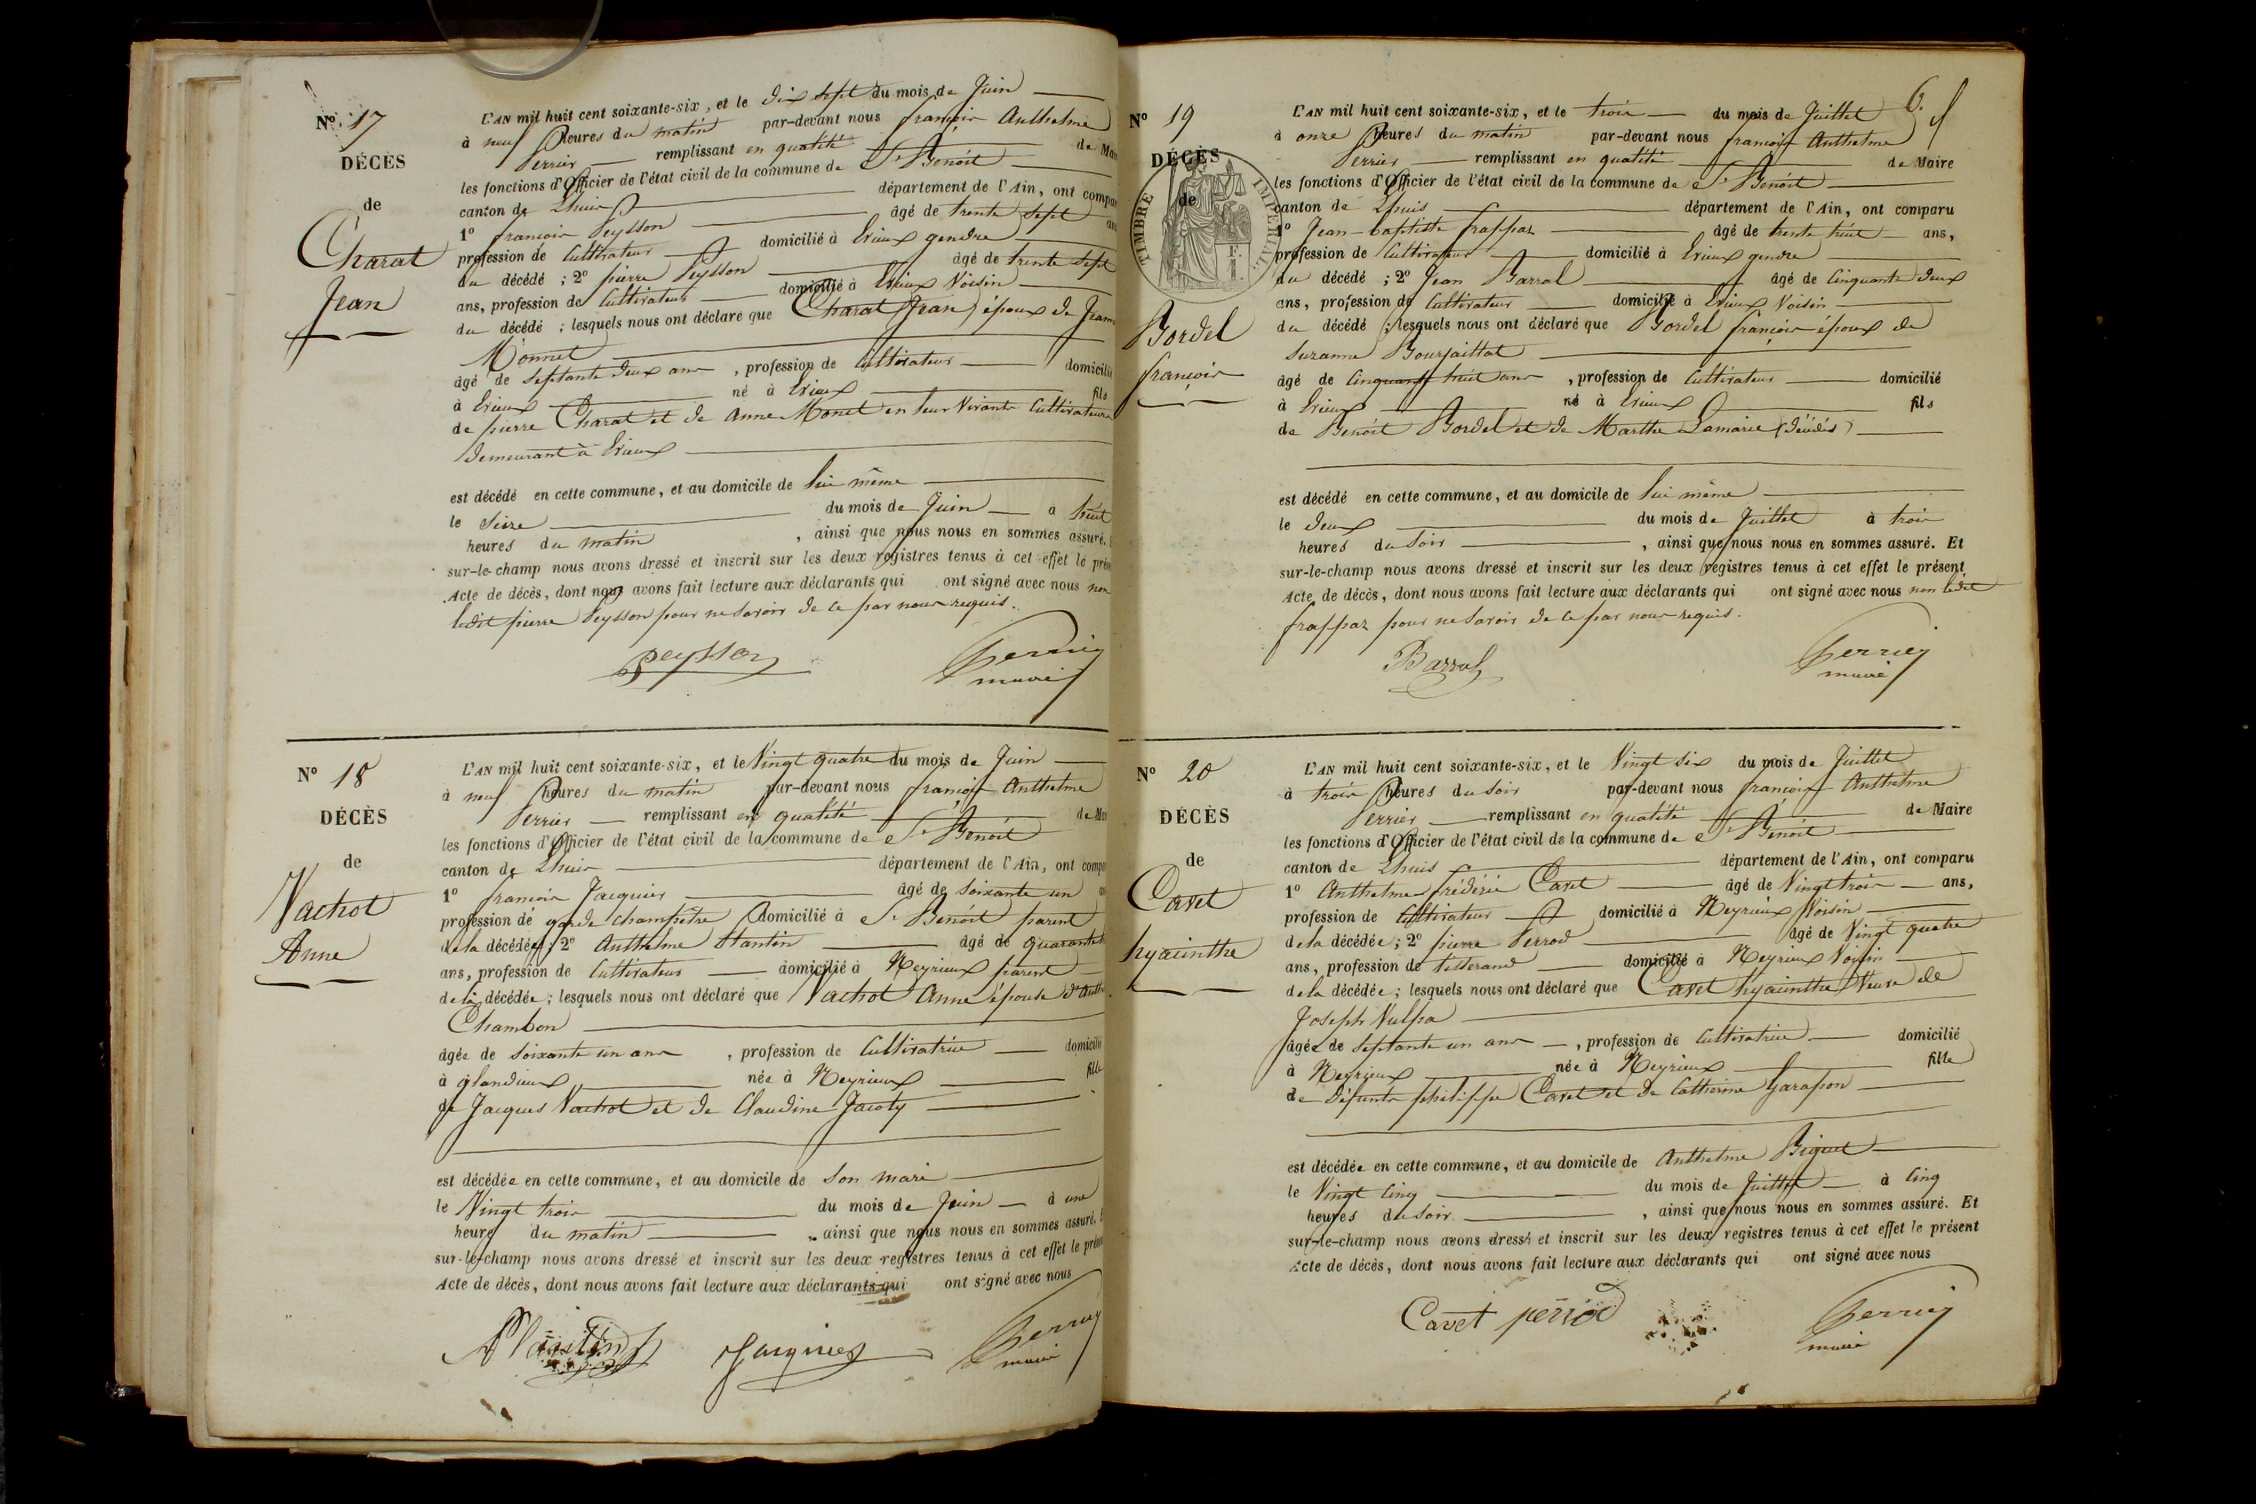 Nº 17
DÉCÈS
de
Charat
Jean
L'AN mil huit cent soixante-six, et le dix sept du mois de Juin
à neuf heures du matin par-devant nous françois Anthelme
Perrier remplissant en qualité de Mai
les fonctions d'Officier de l'état civil de la commune de St Benoit
canton de Lhuis département de l'Ain, ont compar
1º françois Peysson âgé de trente sept ans
profession de Cultivateur domicilié à Evieux gendre
du décédé ; 2º pierre Peysson âgé de trente sept
ans, profession de Cultivateur domicilié à Evieux Voisin
du décédé ; lesquels nous ont déclaré que Charat (Jean) époux de Jeann
Monnet
âgé de septante deux ans , profession de Cultivateur domicilié
à Evieux né à Evieux fils
de pierre Charat et de Anne Monet en leur Vivants Cultivateurs
demeurant à Evieux
est décédé en cette commune, et au domicile de lui même
le seize du mois de Juin à huit
heures du matin , ainsi que nous nous en sommes assuré.
sur-le-champ nous avons dressé et inscrit sur les deux registres tenus à cet effet le prés
Acte de décès, dont nous avons fait lecture aux déclarants qui ont signé avec nous non
ledit pierre Peysson pour ne savoir de ce par nous requis.
Peysson Perrier
maire
Nº 18
DÉCÈS
de
Vachot
Anne
L'AN mil huit cent soixante-six, et le Vingt quatre du mois de Juin
à neuf heures du matin par-devant nous françois Anthelme
Perrier remplissant en qualité de Mai
les fonctions d'Officier de l'état civil de la commune de St Benoit
canton de Lhuis département de l'Ain, ont compar
1º françois Jacquier âgé de soixante un
profession de garde champêtre domicilié à St Benoit parent
de la décédée ; 2º Anthelme Plantin âgé de quarante
ans, profession de Cultivateur domicilié à Neyrieux parent
de la décédée ; lesquels nous ont déclaré que Vachot Anne épouse d'Anthe
Chambon
âgée de soixante un ans , profession de Cultivatrice domicilié
à glandieux née à Neyrieux fille
de Jacques Vachot et de Claudine Jacoty
est décédée en cette commune, et au domicile de son mari
le Vingt trois du mois de Juin à une
heure du matin , ainsi que nous nous en sommes assuré.
sur-le-champ nous avons dressé et inscrit sur les deux registres tenus à cet effet le prése
Acte de décès, dont nous avons fait lecture aux déclarants qui ont signé avec nous
Plantin Jacquier Perrier
maire
6.
Nº 19
DÉCÈS
de
TIMBRE IMPÉRIAL
Bordel
françois
L'AN mil huit cent soixante-six, et le trois du mois de Juillet
à onze heures du matin par-devant nous françois Anthelme
Perrier remplissant en qualité de Maire
les fonctions d'Officier de l'état civil de la commune de St Benoit
canton de Lhuis département de l'Ain, ont comparu
1º Jean-baptiste frappaz âgé de trente huit ans,
profession de Cultivateur domicilié à Evieux gendre
du décédé ; 2º Jean Barral âgé de Cinquante deux
ans, profession de Cultivateur domicilié à Evieux Voisin
du décédé ; lesquels nous ont déclaré que Bordel françois époux de
suzanne Bourjaillat
âgé de Cinquante huit ans , profession de Cultivateur domicilié
à Evieux né à Evieux fils
de Benoit Bordel et de Marthe Lamarie (décédés)
est décédé en cette commune, et au domicile de lui même
le deux du mois de Juillet à trois
heures du soir , ainsi que nous nous en sommes assuré. Et
sur-le-champ nous avons dressé et inscrit sur les deux registres tenus à cet effet le présent
Acte de décès, dont nous avons fait lecture aux déclarants qui ont signé avec nous non ledit
frappaz pour ne savoir de ce par nous requis.
Barral Perrier
maire
Nº 20
DÉCÈS
de
Cavet
hyacinthe
L'AN mil huit cent soixante-six, et le Vingt six du mois de Juillet
à trois heures du soir par-devant nous françois Anthelme
Perrier remplissant en qualité de Maire
les fonctions d'Officier de l'état civil de la commune de St Benoit
canton de Lhuis département de l'Ain, ont comparu
1º Anthelme frédéric Cavet âgé de Vingt trois ans,
profession de Cultivateur domicilié à Neyrieux Voisin
de la décédée ; 2º pierre Perrod âgé de Vingt quatre
ans, profession de tisserand domicilié à Neyrieux Voisin
de la décédée ; lesquels nous ont déclaré que Cavet hyacinthe Veuve de
Joseph Vulpa
âgée de septante un ans , profession de Cultivatrice domicilié
à Neyrieux née à Neyrieux fille
de défunts philippe Cavet et de Catherine Garapon
est décédée en cette commune, et au domicile de Anthelme Biguet
le Vingt Cinq du mois de Juillet à Cinq
heures du soir , ainsi que nous nous en sommes assuré. Et
sur-le-champ nous avons dressé et inscrit sur les deux registres tenus à cet effet le présent
Acte de décès, dont nous avons fait lecture aux déclarants qui ont signé avec nous
Cavet perrod Perrier
maire